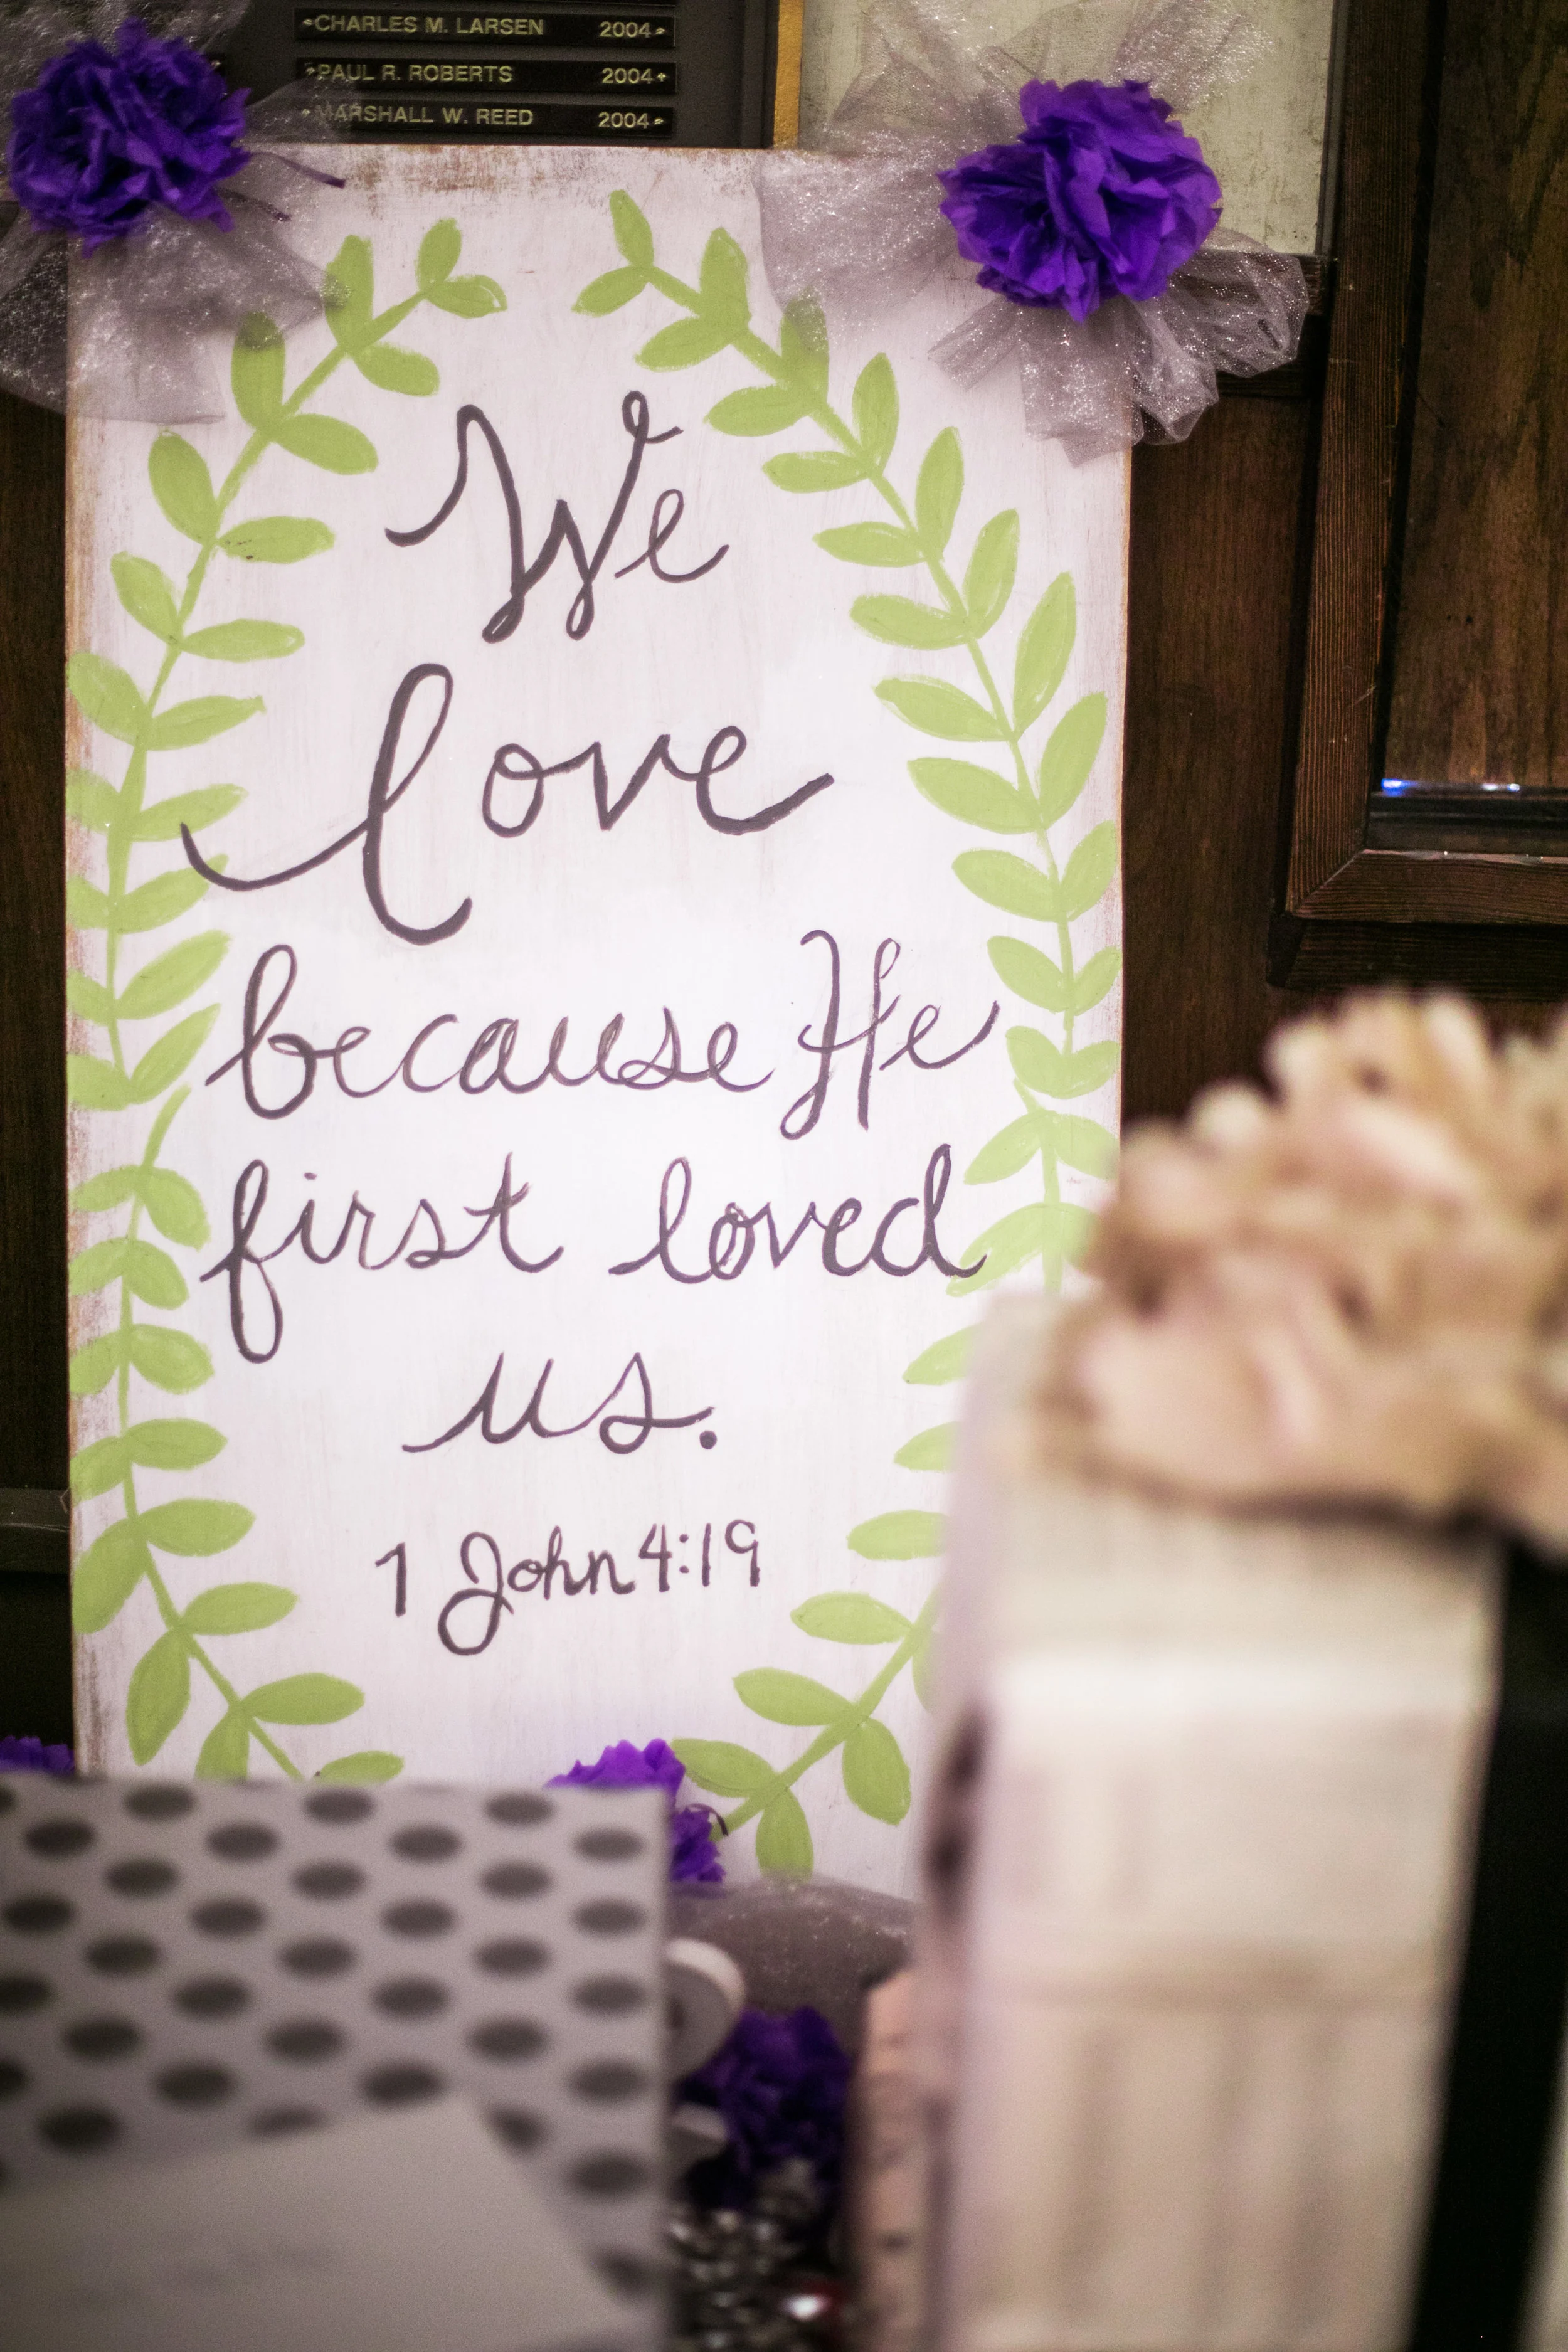 CHARLES M. LARSEN 2004
PAUL R. ROBERTS 2004
MARSHALL W. REED 2004
We
love
because He
first loved
us.
1 John 4:19